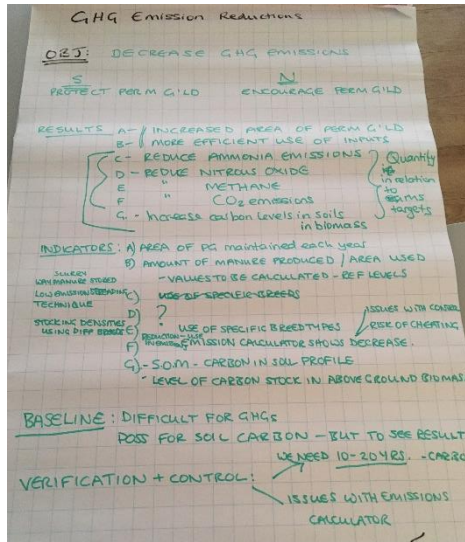 GHG Emission Reductions
OBJ: DECREASE GHG EMISSIONS
S N
PROTECT PERM G'LD ENCOURAGE PERM G'LD
RESULTS A- INCREASED AREA OF PERM G'LD
B- MORE EFFICIENT USE OF INPUTS
C- REDUCE AMMONIA EMISSIONS
D- REDUCE NITROUS OXIDE
E " METHANE
F " CO2 emissions
G - Increase carbon levels in soils
in biomass
Quantity
in relation
to
targets
INDICATORS: A) AREA OF PG maintained each year
B) AMOUNT OF MANURE PRODUCED / AREA USED
- VALUES TO BE CALCULATED - REF LEVELS
SLURRY
WAY MANURE STORED
LOW EMISSION SPREADING
TECHNIQUE
C) USE OF SPECIFIC BREEDS
D) ?
STOCKING DENSITIES
USING DIFF
E) USE OF SPECIFIC BREED TYPES
ISSUES WITH CONTROL
RISK OF CHEATING
REDUCTION - USE
F) EMISSION CALCULATOR SHOWS DECREASE.
G) - S.O.M - CARBON IN SOIL PROFILE
- LEVEL OF CARBON STOCK IN ABOVE GROUND BIOMAS
BASELINE: DIFFICULT FOR GHGs
POSS FOR SOIL CARBON - BUT TO SEE RESULT
WE NEED 10-20 YRS. - CARBO
VERIFICATION + CONTROL:
ISSUES WITH EMISSIONS
CALCULATOR